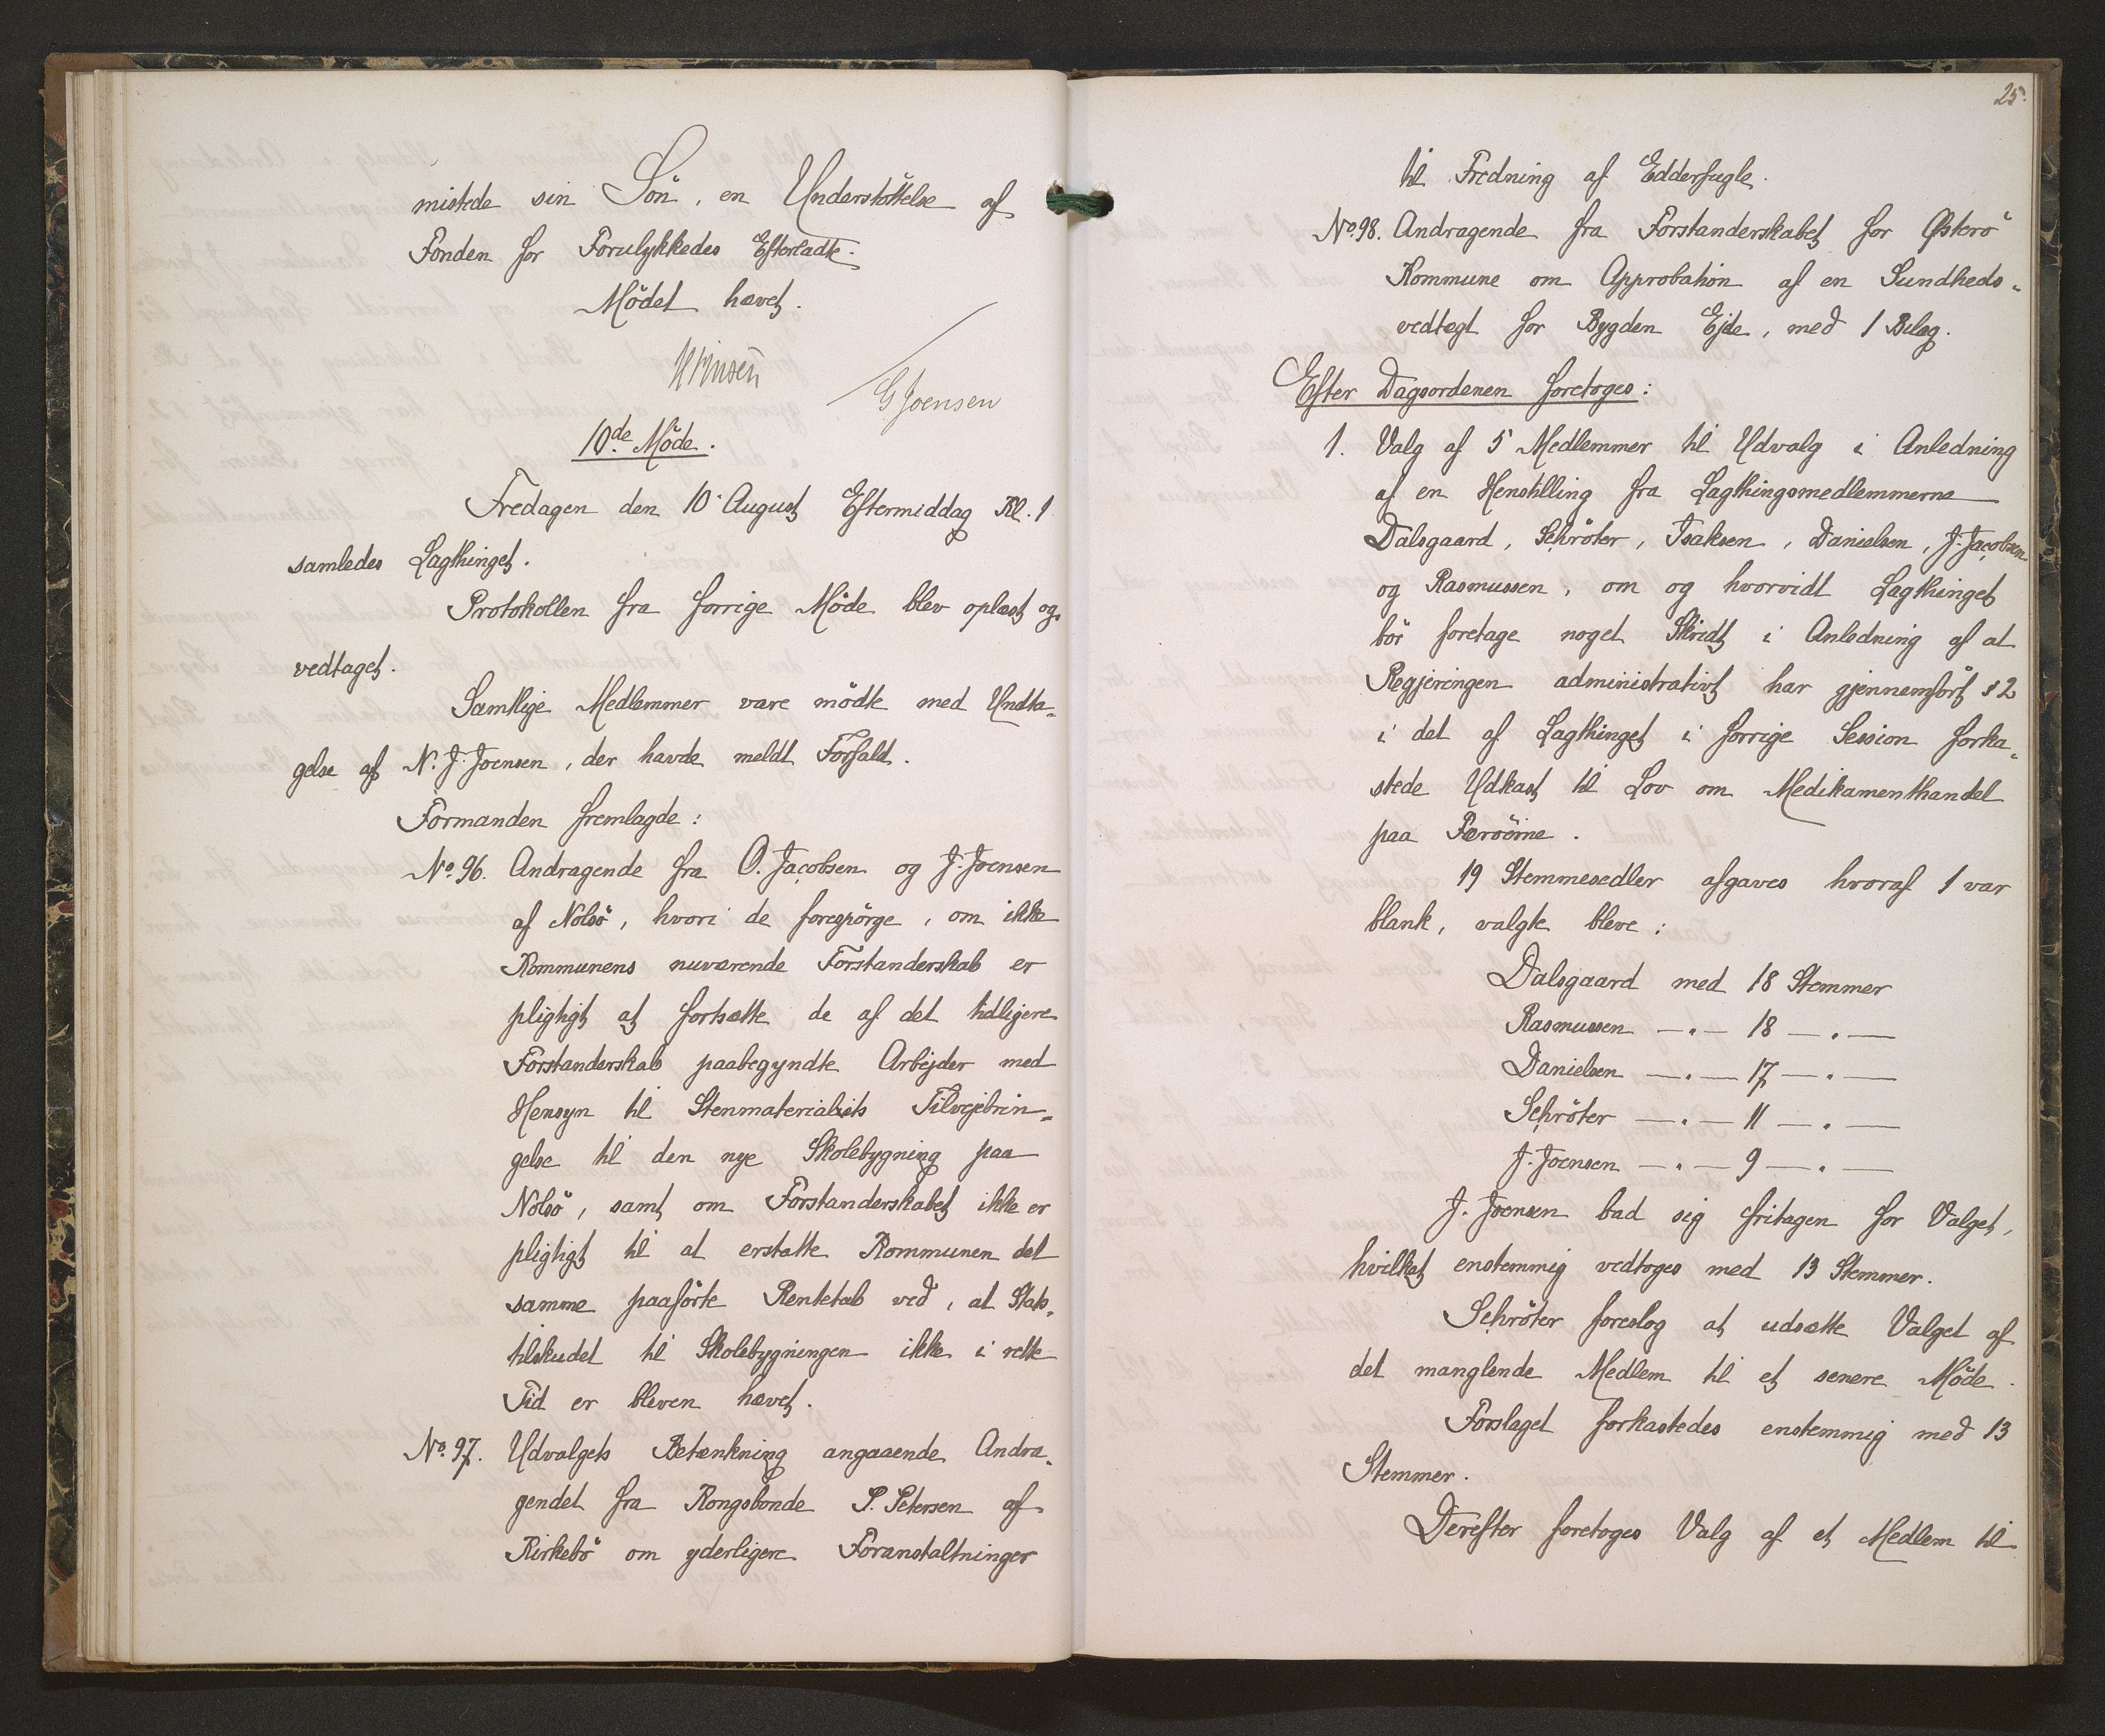 mistede sin Sön, en Understöttelse af
Fonden for Forulykkedes Efterladte.
Mödet hævet.
G Joensen
10de Möde.
Fredagen den 10' August Eftermiddag Kl. 1
samledes Lagthinget.
Protokollen fra forrige Möde blev oplæst og
vedtaget.
Samtlige Medlemmer vare mödte med Undta-
gelse af N. J. Joensen, der havde meldt Forfald.
Formanden fremlagde:
No. 96. Andragende fra O. Jacobsen og J. Joensen
af Nolsö, hvori de forespörge, om ikke
Kommunens nuværende Forstanderskab er
pligtigt at fortsætte de af det tidligere
Forstanderskab paabegyndte Arbejder med
Hensyn til Stenmaterialets Tilvejebrin-
gelse til den nye Skolebygning paa
Nolsö, samt om Forstanderskabet ikke er
pligtigt til at erstatte Kommunen det
samme paaförte Rentetab ved, at Stats-
tilskudet til Skolebygningen ikke i rette
Tid er bleven hævet.
No. 97. Udvalgets Betænkning angaaende Andra-
gendet fra Kongsbonde P. Petersen af
Kirkebö om yderligere Foranstaltninger
25.
til Fredning af Edderfugle.
No. 98. Andragende fra Forstanderskabet for Østerö
Kommune om Approbation af en Sundheds-
vedtægt for Bygden Ejde, med 1 Bilag.
Efter Dagsordenen foretoges:
1. Valg af 5 Medlemmer til Udvalg i Anledning
af en Henstilling fra Lagthingsmedlemmerne
Dalsgaard, Schröter, Isaksen, Danielsen, J. Jacobsen
og Rasmussen, om og hvorvidt Lagthinget
bör foretage noget Skridt i Anledning af at
Regjeringen administrativt har gjennemfört § 2
i det af Lagthinget i forrige Session forka-
stede Udkast til Lov om Medikamenthandel
paa Færöerne.
19 Stemmesedler afgaves hvoraf 1 var
blank, valgte bleve:
Dalsgaard med 18 Stemmer
Rasmussen —"— 18 —"—
Danielsen —"— 17 —"—
Schröter —"— 11 —"—
J. Joensen —"— 9 —"—
J. Joensen bad sig fritagen for Valget,
hvilket enstemmig vedtoges med 13 Stemmer.
Schröter foreslog at udsætte Valget af
det manglende Medlem til et senere Möde.
Forslaget forkastedes enstemmig med 13
Stemmer.
Derefter foretoges Valg af et Medlem til